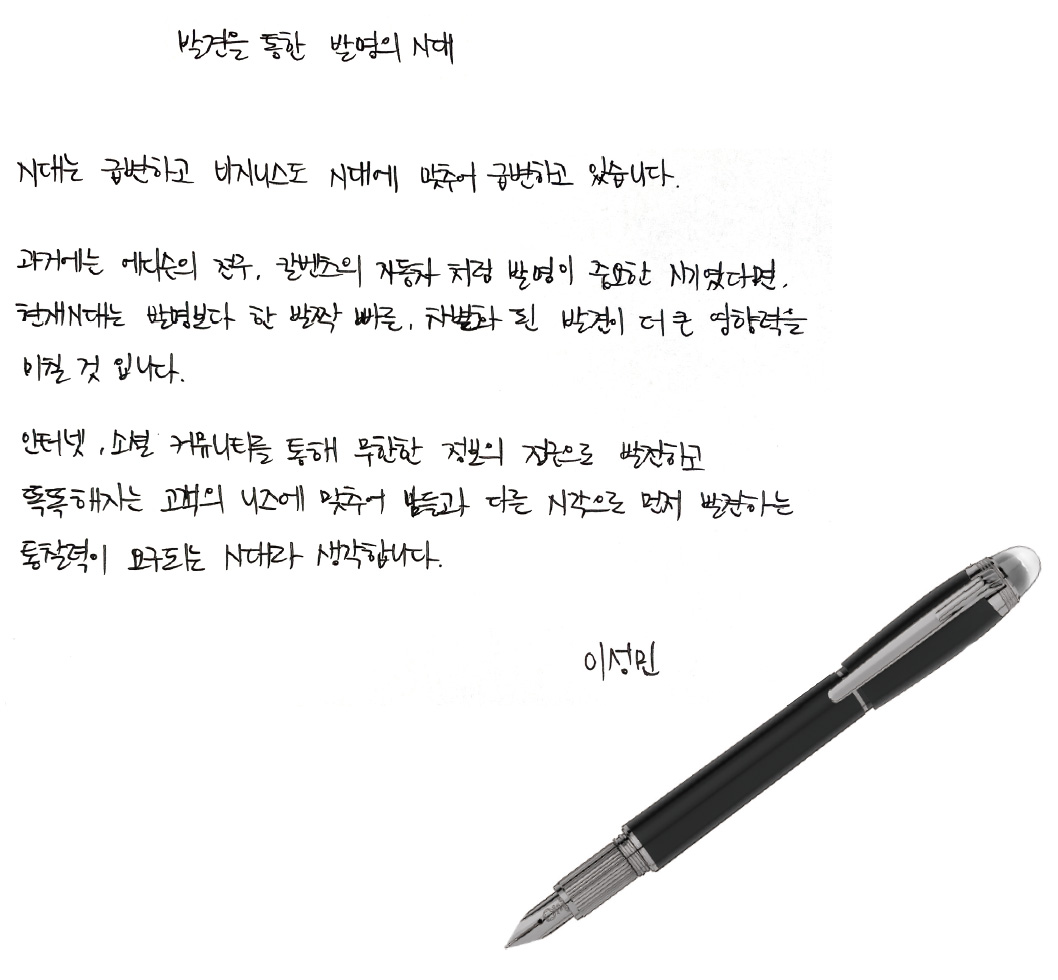 발견을 통한 발명의 시대
시대는 급변하고 비지니스도 시대에 맞추어 급변하고 있습니다.
과거에는 에디슨의 전구, 칼벤츠의 자동차 처럼 발명이 중요한 시기였다면,
현재시대는 발명보다 한 발짝 빠른, 차별화 된 발견이 더 큰 영향력을
미칠 것 입니다.
인터넷, 소셜 커뮤니티를 통해 무한한 정보의 접근으로 발전하고
똑똑해지는 고객의 니즈에 맞추어 남들과 다른 시각으로 먼저 발견하는
통찰력이 요구되는 시대라 생각합니다.
이성민